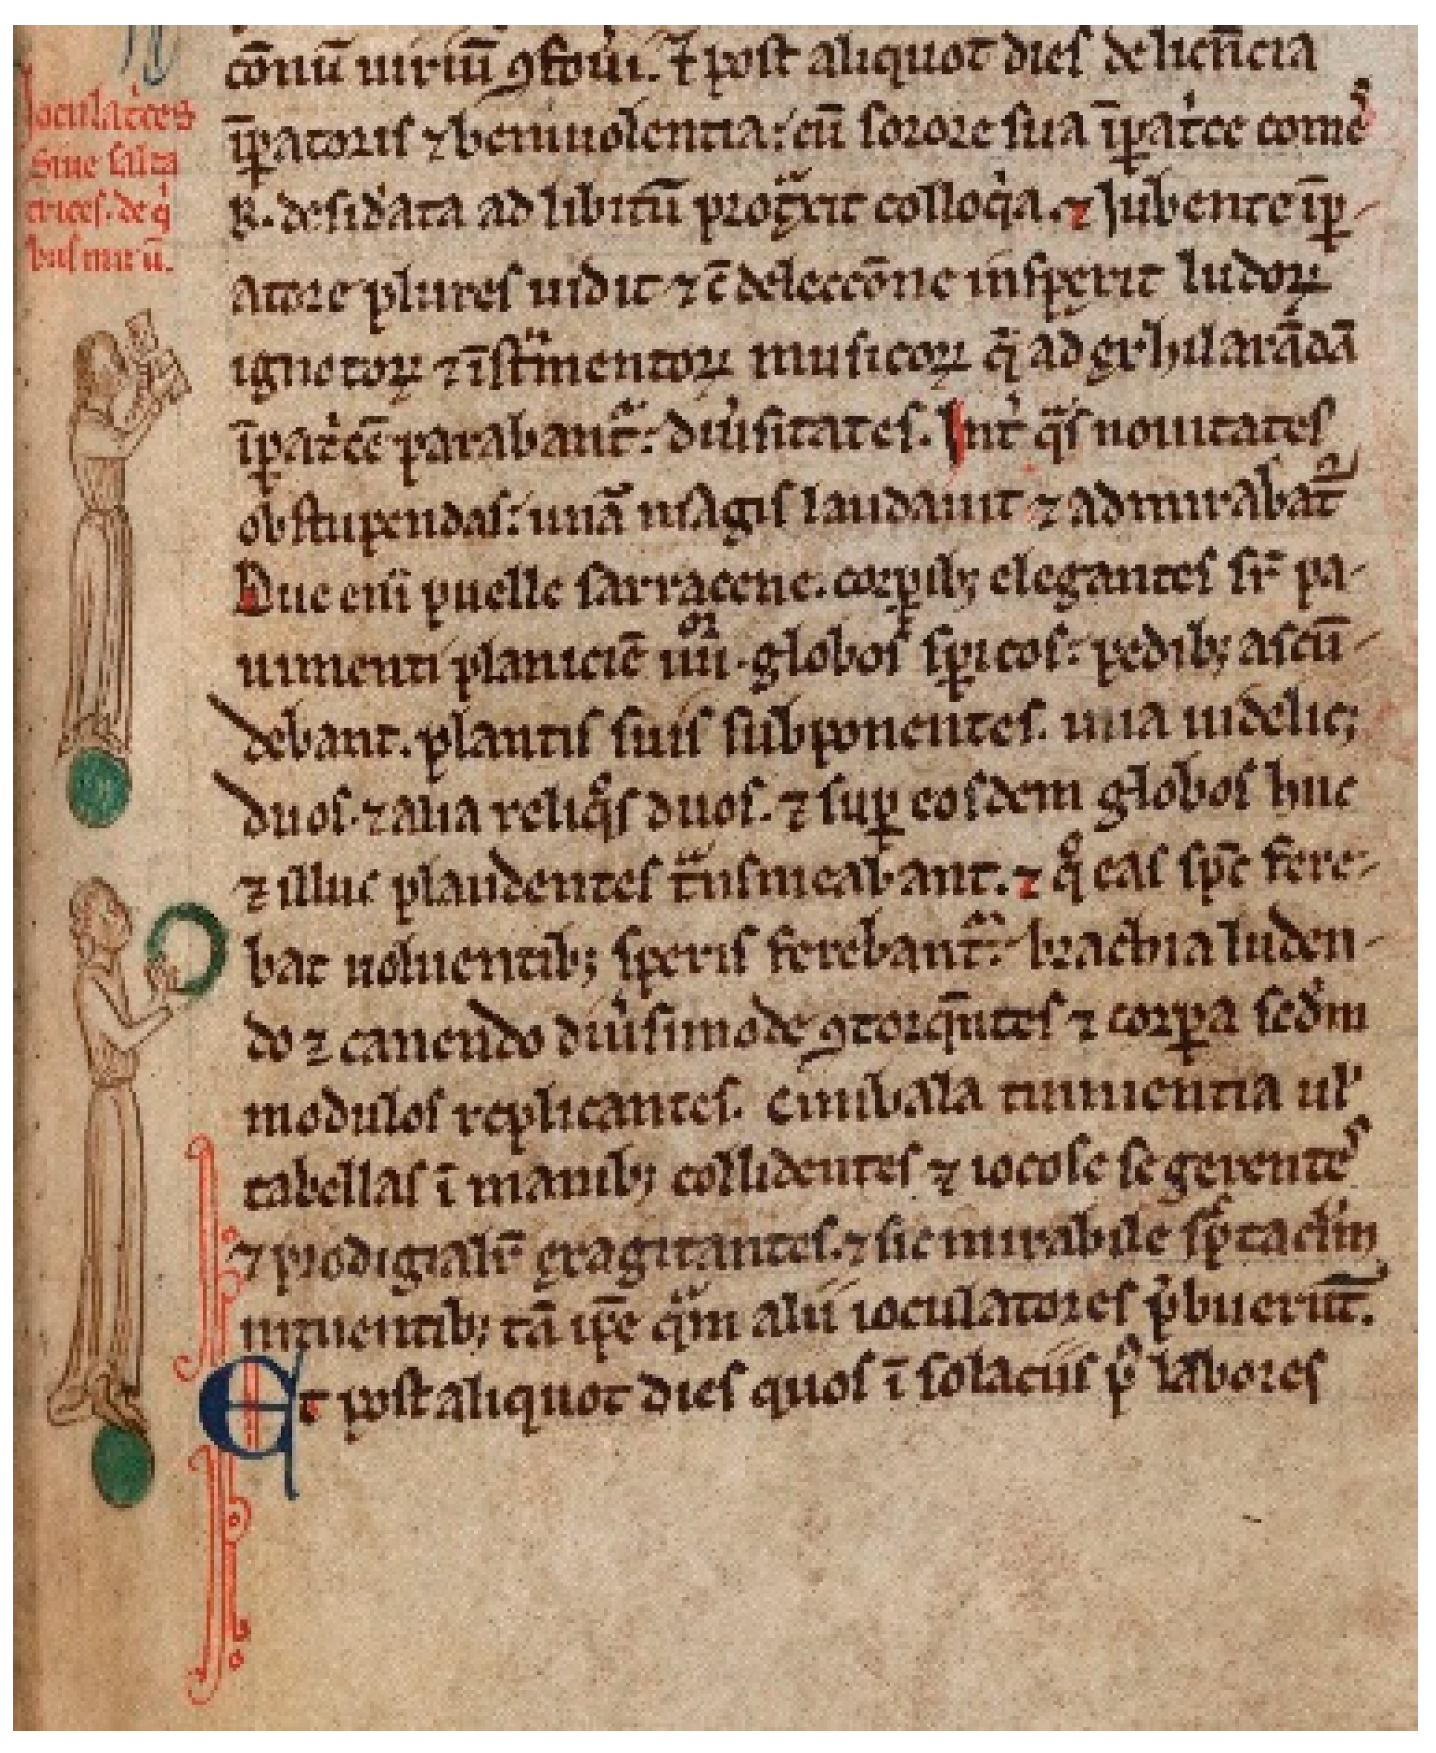 Joculat'ces
Siue salta
trices. de q
bus mirū.
ip̄atoris ⁊ beniuolentia: cū sorore sua īp̄at'ce comes
R. desid'ata ad libitū colloq̄a. ⁊ Jubente īp̄-
atore plures uidit ⁊ c̄ delectōne inspexit ludoꝝ
ignotoꝝ ⁊ īst̄mentoꝝ musicoꝝ q̄ ad hilarādā
īp̄at'cē parabant̄: diu'sitates. Int' q̄s nouitates
obstupendas: unā magis laudauit ⁊ admirabat̄
Due eni puelle sarracene. corpib; elegantes sr̄ pa-
uimenti planiciē iiii᷒ʳ. globos sp̄icos: pedib; ascū-
debant. plantis suis subponentes. una uidelic;
duos. ⁊ alia reliq̊s duos. ⁊ sup̄ eosdem globos huc
⁊ illuc plaudentes t̄nsmeabant. ⁊ q̊ eas sp̄c fere-
bat uoluentib; speris ferebant̄: brachia luden-
do ⁊ canendo diu'simode ꝯtorq̄ntes ⁊ corpa sed'm
modulos replicantes. Cimbala tinnientia ul'
tabellas ī manib; collidentes ⁊ iocose se gerentes
⁊ prodigialr̄ exagitantes. ⁊ sic mirabile sp̄taclm̄
intuentib; tā ip̄e q̄m alii ioculatores p̄buerūt.
Et post aliquot dies quos ī solaciis p' labores